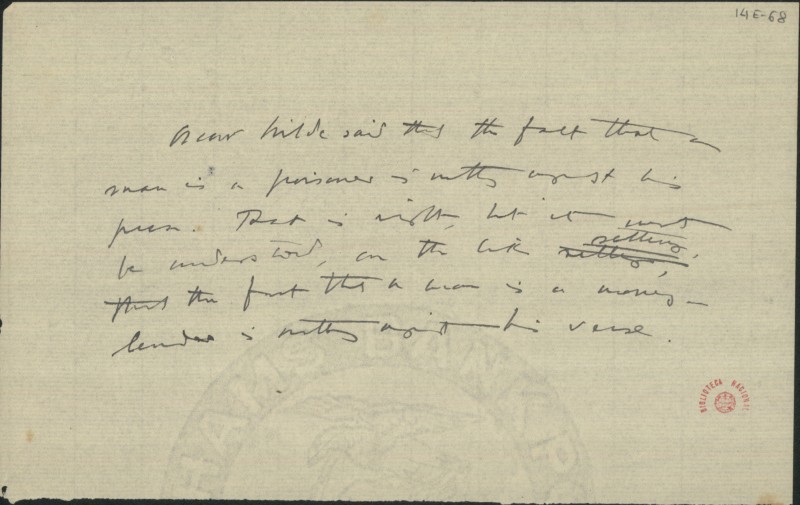 14E-68
Oscar Wilde said that the fact that a
man is a poisoner is nothing against his
prose. That is right, but it must
be understood, on the like setting,
that the fact that a man is a money-
lender is nothing against his verse.
HAMS BANK P
BIBLIOTECA NACIONAL